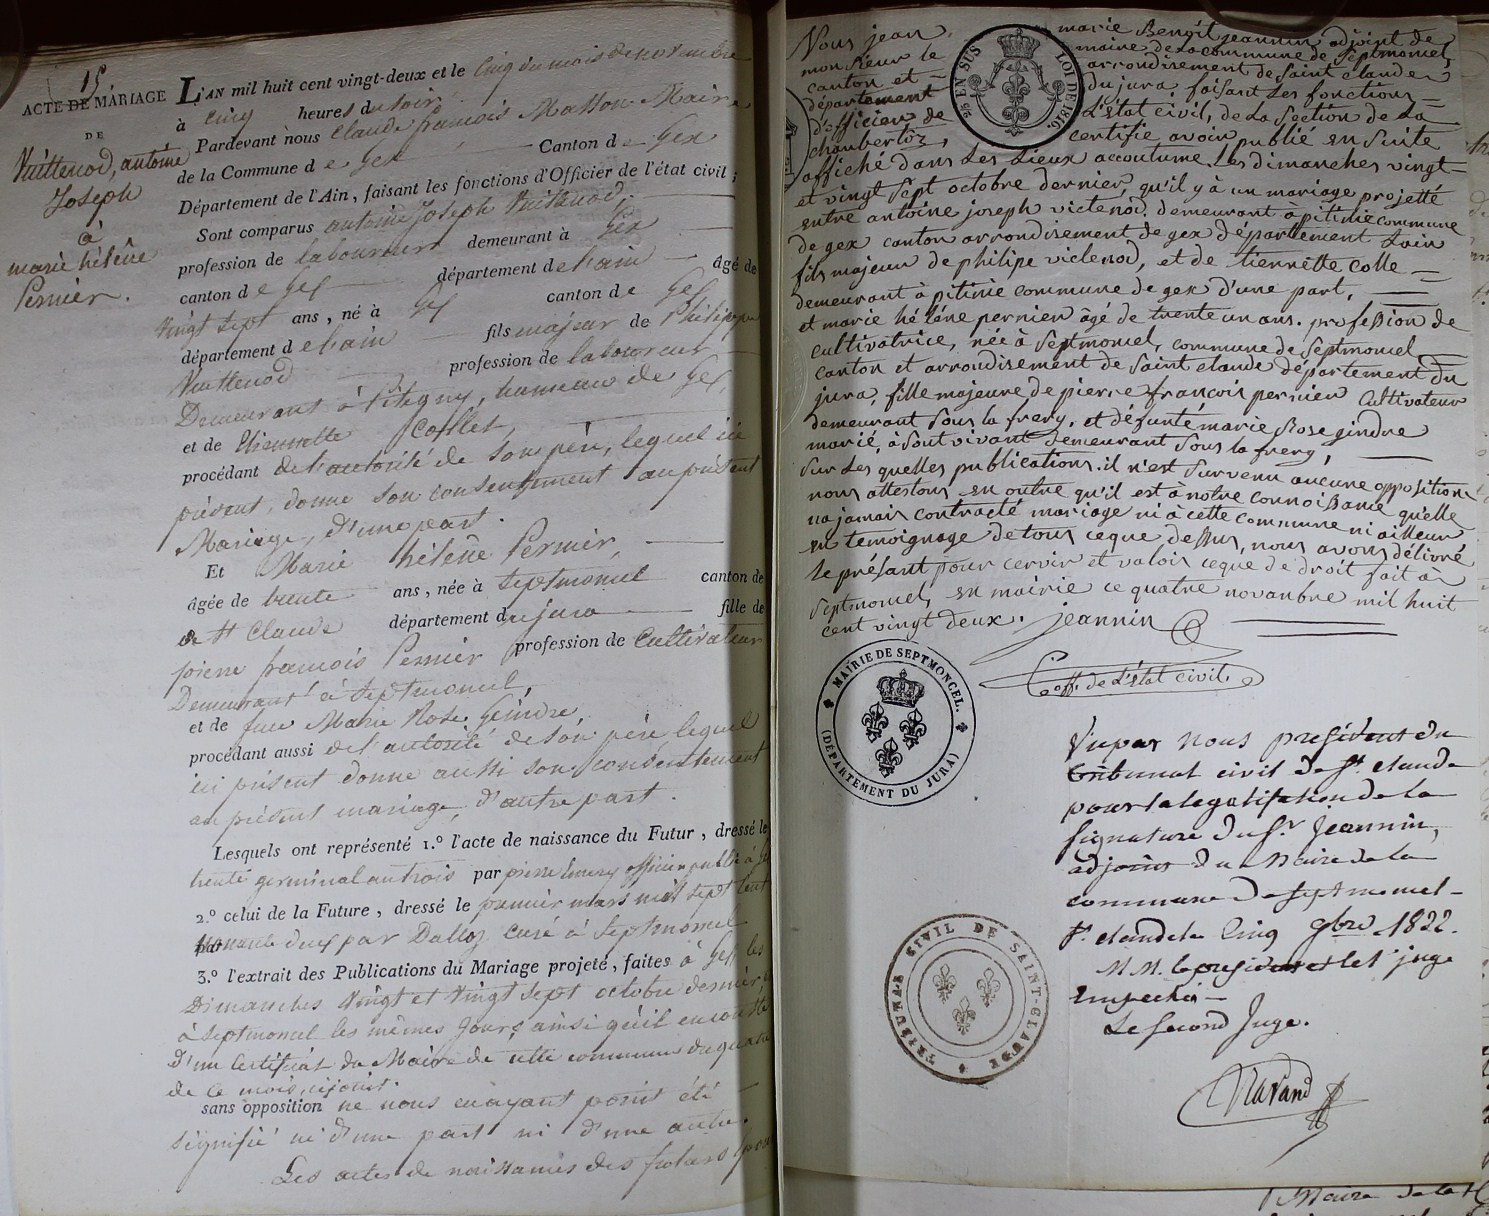 15
ACTE DE MARIAGE
DE
Vuittenod, antoine
Joseph
à
marie hélène
Pernier.
L'AN mil huit cent vingt-deux et le cinq du mois de novembre
à cinq heures du soir
Pardevant nous Claude françois Masson Maire
de la Commune de Gex Canton de Gex
Département de l'Ain, faisant les fonctions d'Officier de l'état civil;
Sont comparus antoine Joseph Vuittenod,
profession de laboureur demeurant à Gex
canton de Gex département de l'ain âgé de
vingt sept ans, né à Gex canton de Gex
département de l'ain fils majeur de Philippe
Vuittenod profession de laboureur
Demeurant à Pitegny, hameau de Gex,
et de Etiennette Collet,
procédant de l'autorité de son père, lequel ici
présent, donne son consentement au présent
Mariage, d'une part.
Et Marie hélène Pernier,
âgée de trente ans, née à Septmoncel canton de
de St Claude département du jura fille de
pierre françois Pernier profession de Cultivateur
Demeurant à Septmoncel,
et de feue Marie Rose Geindre,
procédant aussi de l'autorité de son père lequel
ici présent donne aussi son consentement
au présent mariage, d'autre part.
Lesquels ont représenté 1.º l'acte de naissance du Futur, dressé le
trente germinal an trois par pierre officier public à
2.º celui de la Future, dressé le premier mars mil sept cent
deux par Dalloz curé à Septmoncel
3.º l'extrait des Publications du Mariage projeté, faites à Gex les
Dimanches Vingt et Vingt sept octobre dernier,
à Septmoncel les mêmes jours, ainsi qu'il en conste
D'un Certificat du Maire de cette commune du quatre
de ce mois, cijoint.
sans opposition ne nous en ayant point été
signifié ni d'une part ni d'une autre.
Les actes de naissances des futurs
Nous jean marie Benoit jeannin adjoint de
monsieur le maire de la commune de Septmoncel
canton et arrondisement de Saint claude
département du jura, faisant les fonctions
d'officier de L'état civil, de La Section de La
chaubertoz, certifie avoir publié en suite
affiché dans Les Lieux accoutume, Les dimanches vingt
et vingt Sept octobre dernier, qu'il y à un mariage projetté
entre antoine joseph victenod. demeurant à pitinie commune
de gex canton arrondisement de gex département Lain
fils majeur de philipe victenod, et de tiennette colle
demeurant à pitinie commune de gex d'une part,
et marie hélène pernier âgé de trente un ans. profession de
cultivatrice, née à Septmoncel, commune de Septmoncel
canton et arrondisement de Saint claude département du
jura, fille majeure de pierre françois pernier Cultivateur
demeurant Sous la frery, et défunté marie Rose gindre
marié, à Sont vivant demeurant Sous la frery,
Sur Les quelles publications. il n'est Survenu aucune opposition
nous attestons en outre qu'il est à notre connoissance qu'elle
na jamais contracté mariage ni à cette commune ni ailleur
en temoignage de tous ceque dessus, nous avons délivré
le présant pour cervir et valoir ceque de droit fait a
Septmoncel, en mairie ce quatre novanbre mil huit
cent vingt deux. jeannin
off. de L'état civil.
25 EN SUS
LOI DE 1816.
MAIRIE DE SEPTMONCEL.
(DÉPARTEMENT DU JURA)
Vu par Nous president du
tribunal civil de St. claude
pour la legalisation de la
signature du Sr. Jeannin,
adjoint du Maire de la
commune de Septmoncel
St. claude le Cinq 9bre 1822.
M M. le president et le 1er juge
Empechés
Le second Juge.
TRIBUNAL CIVIL DE SAINT-CLAUDE